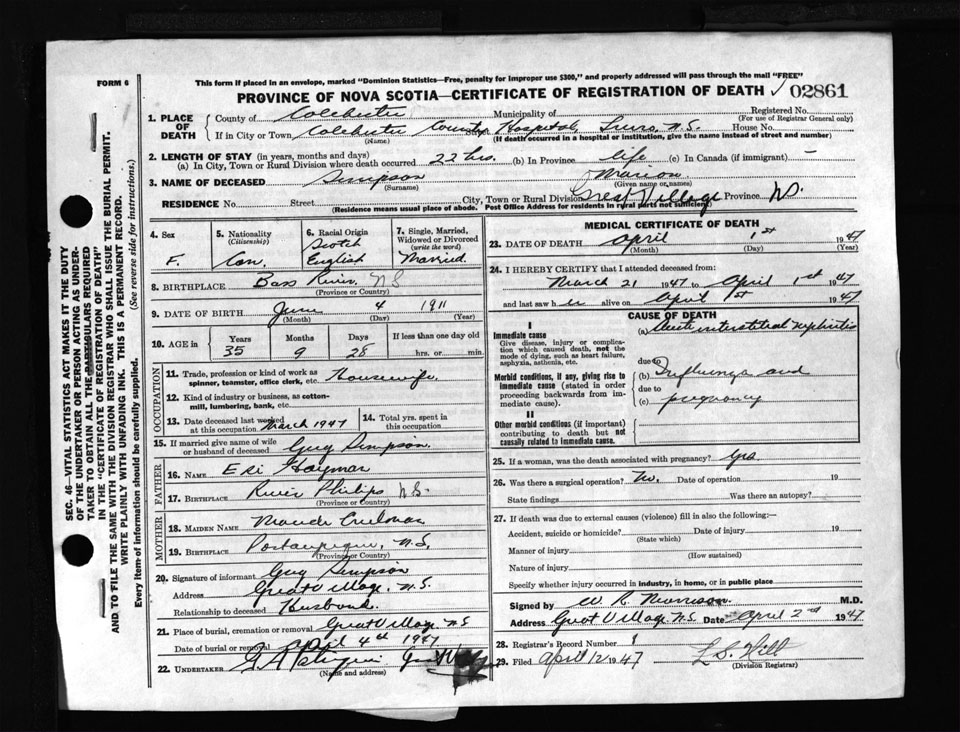 FORM 6
This form if placed in an envelope, marked "Dominion Statistics—Free, penalty for improper use $300," and properly addressed will pass through the mail "FREE"
PROVINCE OF NOVA SCOTIA—CERTIFICATE OF REGISTRATION OF DEATH √ 02861
SEC. 46—VITAL STATISTICS ACT MAKES IT THE DUTY
OF THE UNDERTAKER OR PERSON ACTING AS UNDER-
TAKER TO OBTAIN ALL THE PARTICULARS REQUIRED
IN THE "CERTIFICATE OF REGISTRATION OF DEATH"
AND TO FILE THE SAME WITH THE DIVISION REGISTRAR WHO SHALL ISSUE THE BURIAL PERMIT.
WRITE PLAINLY WITH UNFADING INK. THIS IS A PERMANENT RECORD.
Every item of information should be carefully supplied. (See reverse side for instructions.)
1. PLACE OF DEATH
County of Colchester Municipality of Registered No.
(For use of Registrar General only)
If in City or Town Colchester County Hospital, Truro, N.S. House No.
(Name) (If death occurred in a hospital or institution, give the name instead of street and number)
2. LENGTH OF STAY (in years, months and days)
(a) In City, Town or Rural Division where death occurred 22 hrs. (b) In Province life (c) In Canada (if immigrant) —
3. NAME OF DECEASED Simpson Marion
(Surname) (Given name or names)
RESIDENCE No. Street City, Town or Rural Division Great Village Province N.S.
(Residence means usual place of abode. Post Office Address for residents in rural parts not sufficient)
4. Sex
F.
5. Nationality
(Citizenship)
Can.
6. Racial Origin
Scotch
English
7. Single, Married,
Widowed or Divorced
(write the word)
Married.
8. BIRTHPLACE Bass River, N S
(Province or Country)
9. DATE OF BIRTH June 4 1911
(Month) (Day) (Year)
10. AGE in Years Months Days If less than one day old
35 9 28 hrs. or min.
OCCUPATION
11. Trade, profession or kind of work as
spinner, teamster, office clerk, etc. Housewife.
12. Kind of industry or business, as cotton-
mill, lumbering, bank, etc.
13. Date deceased last worked
at this occupation March 1947
14. Total yrs. spent in
this occupation
15. If married give name of wife
or husband of deceased Guy Simpson.
FATHER
16. NAME Eri
17. BIRTHPLACE River Philips N.S.
(Province or Country)
MOTHER
18. MAIDEN NAME Maude
19. BIRTHPLACE Portaupique, N.S,
(Province or Country)
20. Signature of informant Guy Simpson
Address Great Village. N.S.
Relationship to deceased Husband.
21. Place of burial, cremation or removal Great Village N S
Date of burial or removal April 4th 1947
22. UNDERTAKER
(Name and address)
MEDICAL CERTIFICATE OF DEATH
23. DATE OF DEATH April 1st 1947
(Month) (Day) (Year)
24. I HEREBY CERTIFY that I attended deceased from:
March 21 1947 to April 1st 1947
and last saw her alive on April 1st 1947
CAUSE OF DEATH
I
Immediate cause
Give disease, injury or complica-
tion which caused death, not the
mode of dying, such as heart failure,
asphyxia, asthenia, etc.
(a) Acute interstitial nephritis
due to
Morbid conditions, if any, giving rise to
immediate cause (stated in order
proceeding backwards from im-
mediate cause).
(b) Influenza and
due to
(c) pregnancy
II
Other morbid conditions (if important)
contributing to death but not
causally related to immediate cause.
25. If a woman, was the death associated with pregnancy? Yes.
26. Was there a surgical operation? No. Date of operation 19
State findings Was there an autopsy?
27. If death was due to external causes (violence) fill in also the following:—
Accident, suicide or homicide? Date of injury 19
(State which)
Manner of injury
(How sustained)
Nature of injury
Specify whether injury occurred in industry, in home, or in public place
Signed by W R Morrison M.D.
Address Great Village N.S Date April 2nd 1947
28. Registrar's Record Number 9
29. Filed April 12 1947 L S. Hill
(Division Registrar)